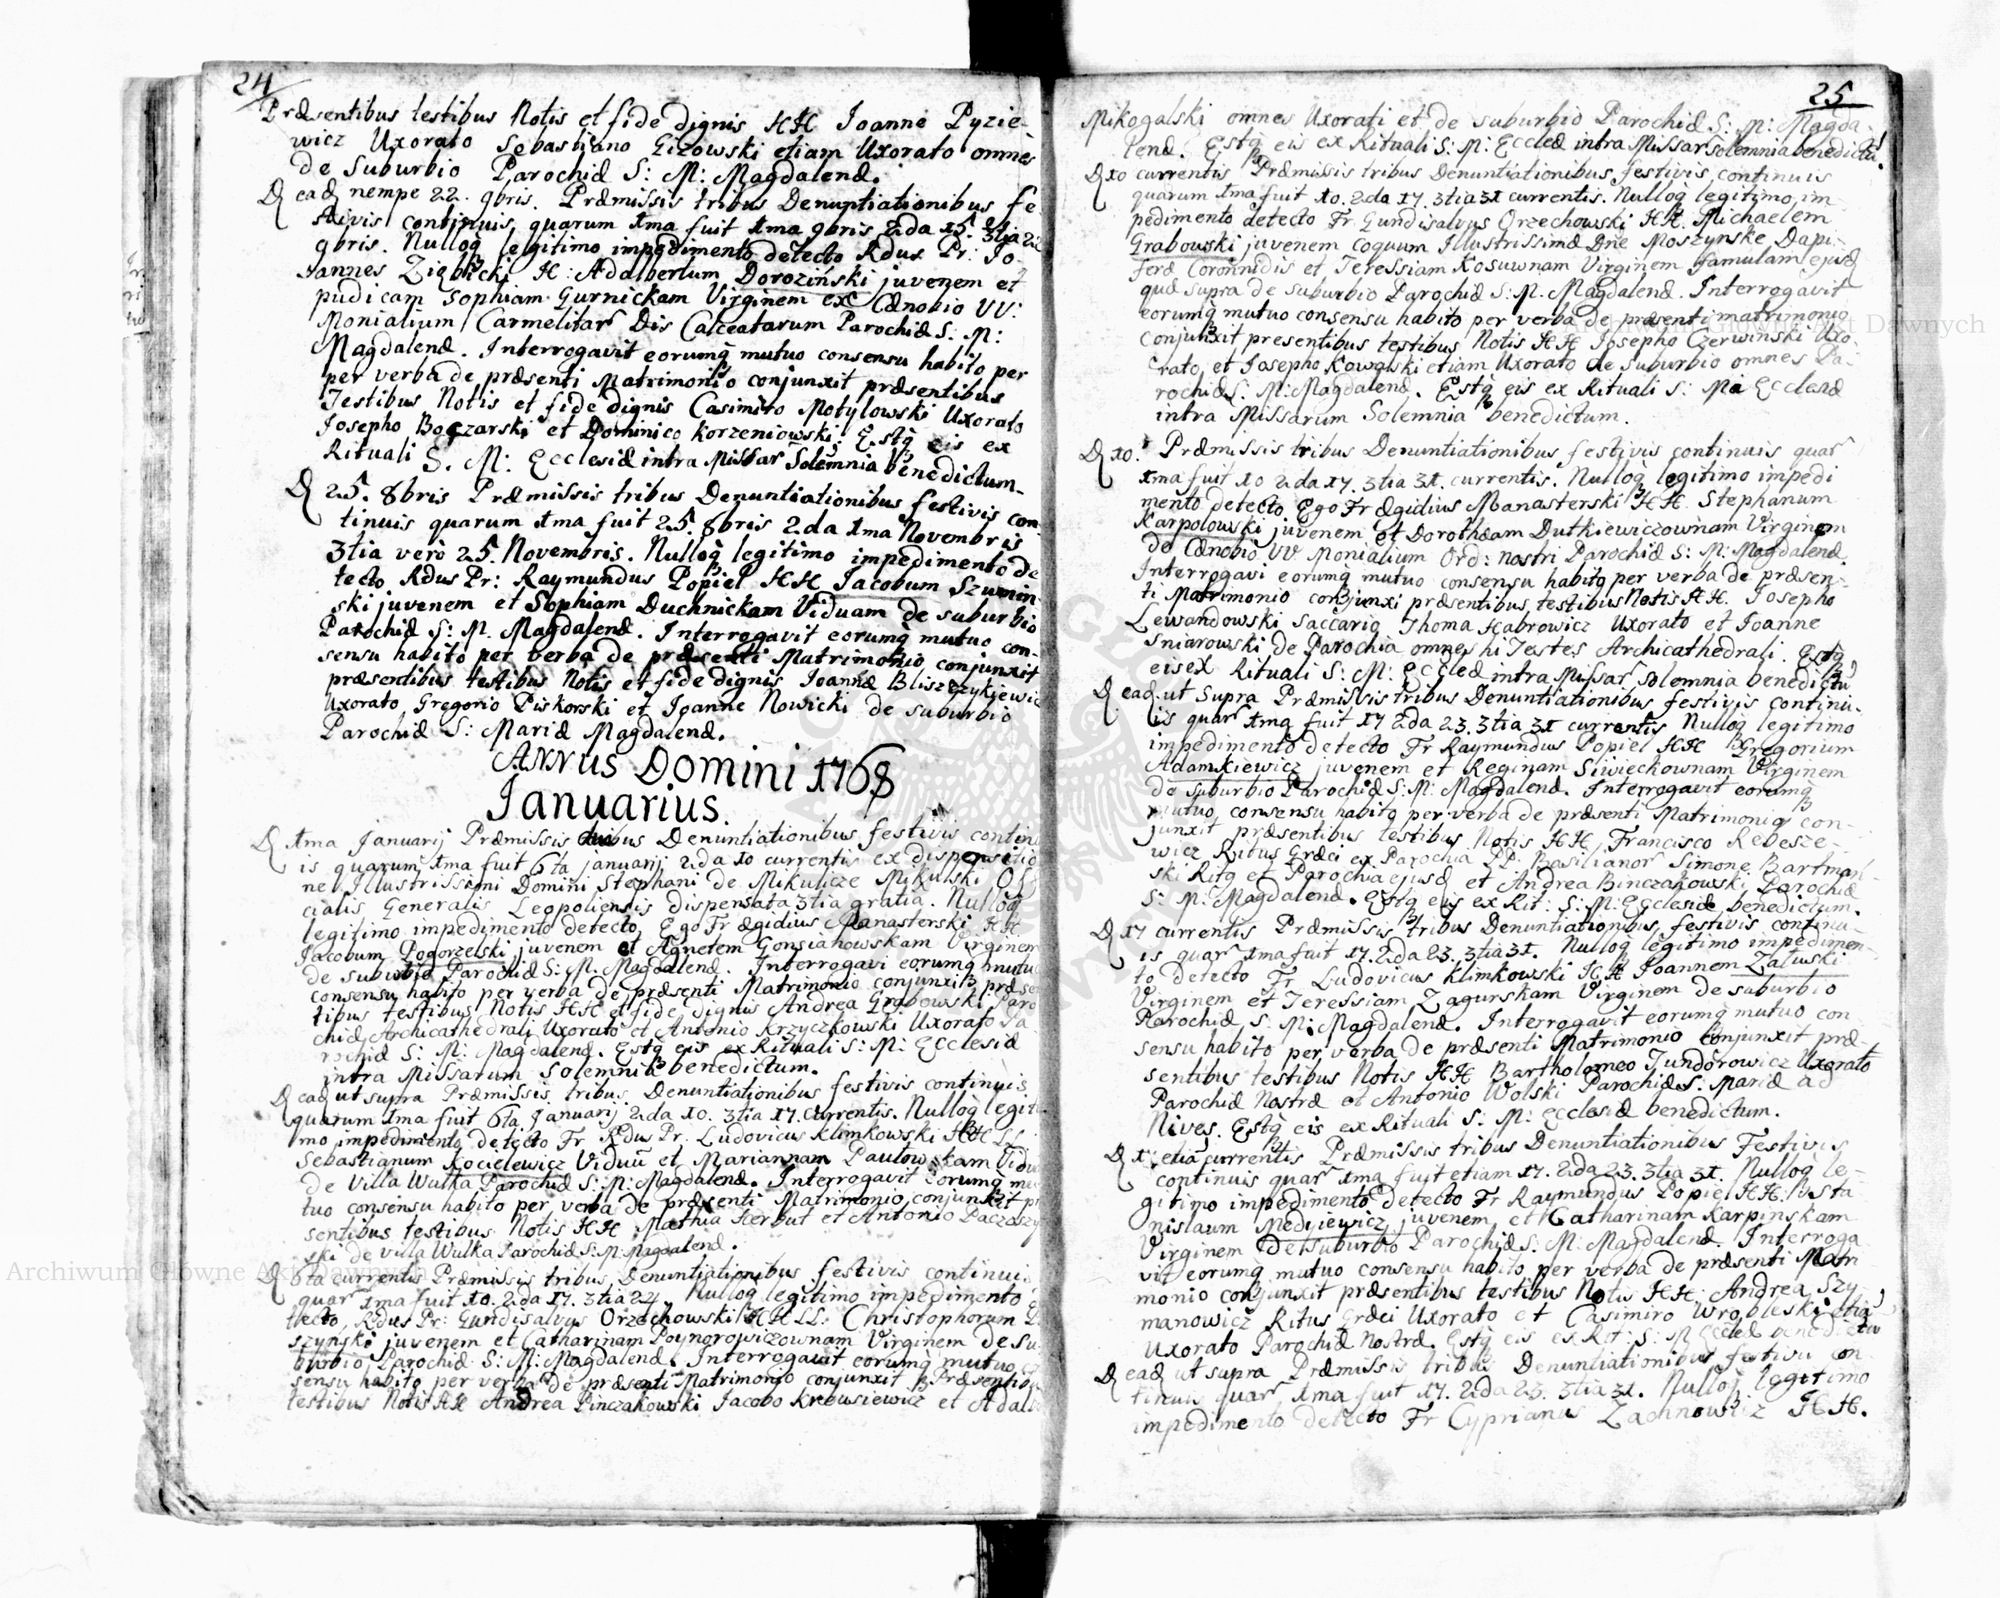 24
Præsentibus testibus Notis et fide dignis HH Joanne Pyzie-
wicz Uxorato Sebastiano Gizowski etiam Uxorato omnes
de Suburbio Parochiæ S: M: Magdalenæ.
D eadē nempe 22. 9bris. Præmissis tribus Denuntiationibus fe
stivis continuis, quarum 1ma fuit 1ma 9bris 2da 15. 3tia 22
9bris. Nulloq legitimo impedimento detecto Rdus Pr: Jo-
annes Ziębicki H: Adalbertum Doroziński juvenem et
pudicam Sophiam Gurnickam Virginem ex Cænobio VV:
Monialium Carmelitar Dis Calceatarum Parochiæ S: M:
Magdalenæ. Interrogavit eorumq mutuo consensu habito per
per verba de præsenti Matrimonio conjunxit præsentibus
Testibus Notis et fide dignis Casimiro Motylowski Uxorato
Josepho Boczarski et Dominico Korzeniowski. Estq eis ex
Rituali S. M: Ecclesiæ intra Missar Solemnia benedictum.
D 25. 8bris Præmissis tribus Denuntiationibus festivis con
tinuis quarum 1ma fuit 25 8bris 2da 1ma Novembris
3tia verò 25 Novembris. Nulloq legitimo impedimento de
tecto Rdus Pr: Raymundus Popiel HH Jacobum Szumin
ski juvenem et Sophiam Duchnickam Viduam de suburbio
Parochiæ S: M. Magdalenæ. Interrogavit eorumq mutuo con-
sensu habito per verba de præsenti Matrimonio conjunxit
præsentibus testibus Notis et fide dignis Joanne Bliszczykiewic
Uxorato, Gregorio Piskorski et Joanne Nowicki de suburbio
Parochiæ S: Mariæ Magdalenæ.
Annus Domini 1768
Januarius.
D 1ma Januarij Præmissis Denuntiationibus festivis contin
is quarum 1ma fuit 6ta januarij 2da 10 currentis ex dispensatio
ne Illustrissimi Domini Stephani de Mikulicze Mikulski Of
cialis Generalis Leopoliensis dispensata 3tia gratia. Nulloq
legitimo impedimento detecto, Ego Fr Ægidius Manasterski HH
Jacobum Pogorzelski juvenem et Agnetem Gonsiahowskam Virginem
de suburbio Parochiæ S: M. Magdalenæ. Interrogavi eorumq mutuo
consensu habito per verba de præsenti Matrimonio conjunxi præsen
tibus testibus Notis HH et fide dignis Andrea Grabowski Paro
chiæ Archicathedrali Uxorato et Antonio Krzyczkowski Uxorato Pa
rochiæ S: M: Magdalenæ. Estq eis ex Rituali S: M: Ecclesiæ
intra Missarum Solemnia benedictum.
D eadē ut supra Præmissis tribus Denuntiationibus festivis continuis
quarum 1ma fuit 6ta Januarij 2da 10. 3tia 17. currentis. Nulloq legiti
mo impedimento detecto Fr Rdus Pr. Ludovicus Klimkowski HH LL
Sebastianum Kocielewicz Viduū et Mariannam Pautowskam Vidu
de Villa Wulka Parochiæ S: M: Magdalenæ. Interrogavit eorumq mu
tuo consensu habito per verba de præsenti Matrimonio conjunxit præ
sentibus testibus Notis HH Mathia Herbut et Antonio Paczoszyn
ski de Villa Wulka Parochiæ S: M: Magdalenæ.
D 6ta currentis Præmissis tribus Denuntiationibus festivis continuis
quar 1ma fuit 10. 2da 17. 3tia 24. Nulloq legitimo impedimento
tecto, Rdus Pr: Gundisalvus Orzechowski HH LL. Christophorum
szynski juvenem et Catharinam Poynorowiczownam Virginem de Su
burbio Parochiæ S: M: Magdalenæ. Interrogavit eorumq mutuo con
sensu habito per verba de præsenti Matrimonio conjunxit Præsentibus
testibus Notis HH Andrea Pinczakowski Jacobo Krebusiewicz et Adalb
25
Mikogalski omnes Uxorati et de suburbio Parochiæ S: M: Magda-
lenæ. Estq eis ex Rituali S: M: Ecclæ intra Missar Solemnia benedictū.
D 10 currentis Præmissis tribus Denuntiationibus festivis continuis
quarum 1ma fuit 10. 2da 17. 3tia 31 currentis. Nulloq legitimo im-
pedimento detecto Fr Gundisalvus Orzechowski HH. Michaelem
Grabowski juvenem coquum Illustrissimæ Dñe Moszynske Dapi-
feræ Coronnidis et Teressiam Kosuwnam Virginem famulam ejusd
quæ supra de suburbio Parochiæ S: M. Magdalenæ. Interrogavit
eorumq mutuo consensu habito per verba de præsenti matrimonio
conjunxit presentibus testibus Notis HH Josepho Czerwinski Uxo-
rato, et Josepho Kowalski etiam Uxorato de suburbio omnes Pa-
rochiæ S: M: Magdalenæ. Estq eis ex Rituali S: Mæ Ecclesiæ
intra Missarum Solemnia benedictum.
D 10. Præmissis tribus Denuntiationibus festivis continuis quar
1ma fuit 10 2da 17. 3tia 31. currentis. Nulloq legitimo impedi
mento detecto Ego Fr Ægidius Manasterski HH Stephanum
Karpolowski juvenem et Dorothæam Dutkiewiczownam Virginem
de Cænobio VV Monialium Ord: nostri Parochiæ S: M: Magdalenæ.
Interrogavi eorumq mutuo consensu habito per verba de præsen-
ti Matrimonio conjunxi præsentibus testibus Notis HH. Josepho
Lewandowski Saccario Thoma Habrowicz Uxorato et Joanne
Sniarowski de Parochia omnes hi Testes Archicathedrali. Estq
eis ex Rituali S: M: Ecclæ intra Missar Solemnia benedictū
D eadē ut Supra Præmissis tribus Denuntiationibus festivis continu-
is quar 1ma fuit 17 2da 23. 3tia 31 currentis Nulloq legitimo
impedimento detecto Fr Raymundus Popiel HH Gregorium
Adamkiewicz juvenem et Reginam Siwieckownam Virginem
de suburbio Parochiæ S: M: Magdalenæ. Interrogavit eorumq
mutuo consensu habito per verba de præsenti Matrimonio con-
junxit præsentibus testibus Notis HH Francisco Rebesze-
wicz Ritus Græci ex Parochia PP. Basilianor Simone Bartman-
ski Ritq et Parochia ejusd et Andrea Binczakowski Parochiæ
S: M: Magdalenæ. Estq eis ex Rit: S: M: Ecclesiæ benedictum.
D 17 currentis Præmissis tribus Denuntiationibus festivis continu-
is quar 1ma fuit 17. 2da 23. 3tia 31. Nulloq legitimo impedimen-
to detecto Fr Ludovicus Klimkowski HH Joannem Zaluski
Virginem et Teressiam Zagurskam Virginem de suburbio
Parochiæ S: M: Magdalenæ. Interrogavit eorumq mutuo con
sensu habito per verba de præsenti Matrimonio conjunxit præ-
sentibus testibus Notis HH Bartholomeo Jundorowicz Uxorato
Parochiæ Nostræ et Antonio Wolski Parochiæ S. Mariæ ad
Nives. Estq eis ex Rituali S: M: Ecclesiæ benedictum.
D etiā currentis Præmissis tribus Denuntiationibus Festivis
continuis quar 1ma fuit etiam 17. 2da 23. 3tia 31. Nulloq le-
gitimo impedimento detecto Fr Raymundus Popiel HH. Sta
nislaum Medyiewicz juvenem et Catharinam Karpinskam
Virginem de suburbio Parochiæ S. M: Magdalenæ. Interroga
vit eorumq mutuo consensu habito per verba de præsenti Matri
monio conjunxit præsentibus testibus Notis HH. Andrea Szy
manowicz Ritus Græci Uxorato et Casimiro Wrobleski etiā
Uxorato Parochiæ Nostræ. Estq eis ex Rit: S: M Ecclæ benedictū
D eadē ut supra Præmissis tribus Denuntiationibus festivis con-
tinuis quar 1ma fuit 17. 2da 23. 3tia 31. Nulloq legitimo
impedimento detecto Fr Cyprianus Zachnowicz HH.
Archiwum Główne Akt Dawnych
Archiwum Główne Akt Dawnych